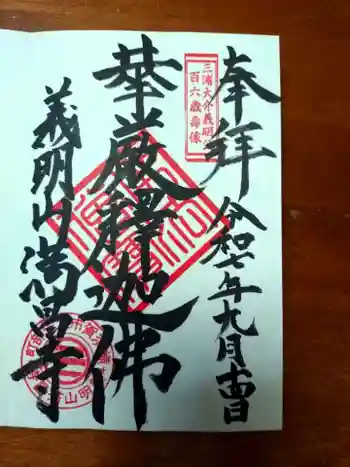 奉拝
令和七年九月十四日
三浦大介義明公
百六歳寿像
華厳釋迦佛
義明山満昌寺